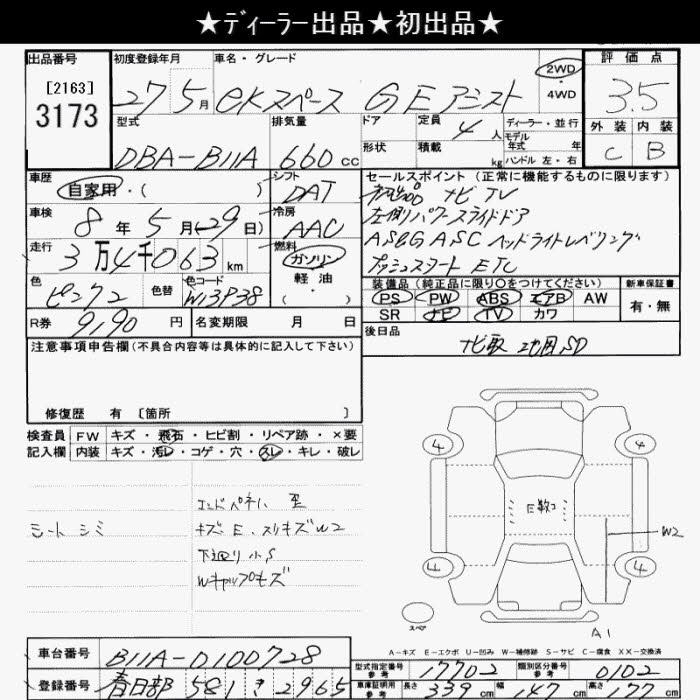 ★ディーラー出品★初出品★
出品番号 初度登録年月 車名・グレード 評価点
[2163]
3173
27 5月 eKスペース G Eアシスト 2WD
4WD
3.5
型式 排気量 ドア 定員 ディーラー・並行 外装 内装
DBA-B11A 660cc 4人 モデル年式 年
形状 積載 kg ハンドル 左・右 C B
車歴 シフト セールスポイント (正常に機能するものに限ります)
自家用・( ) DAT ナビ TV
車検 冷房 左側パワースライドドア
8年5月(29日) AAC ASG ASC ヘッドライトレベリング
走行 燃料 プッシュスタート ETC
3万4千063km ガソリン
軽油
・( )
色 色替 色コード 装備品(純正品に限り○をつけてください) 新車保証書
ピンク2 W13P38 PS PW ABS エアB AW 有・無
SR ナビ TV カワ
R券 9190円 名変期限 月 日 後日品
ナビ取 地図SD
注意事項申告欄(不具合内容等は具体的に記入して下さい)
修復歴 有 [箇所 ]
検査員 FW キズ・飛石・ヒビ割・リペア跡・×要
記入欄 内装 キズ・汚レ・コゲ・穴・スレ・キレ・破レ
シートシミ
キズE、スリキズW2
下廻り小S
4 4
E数コ
W2
4 4
スペア
A1
A-キズ E-エクボ U-凹み W-補修跡 S-サビ C-腐食 XX-交換済
車台番号 B11A-0100728 型式指定番号 参考 17702 類別区分番号 参考 0102
登録番号 春日部 581 き 2965 車庫証明用 参考 長さ 339cm 幅 147cm 高さ 177cm